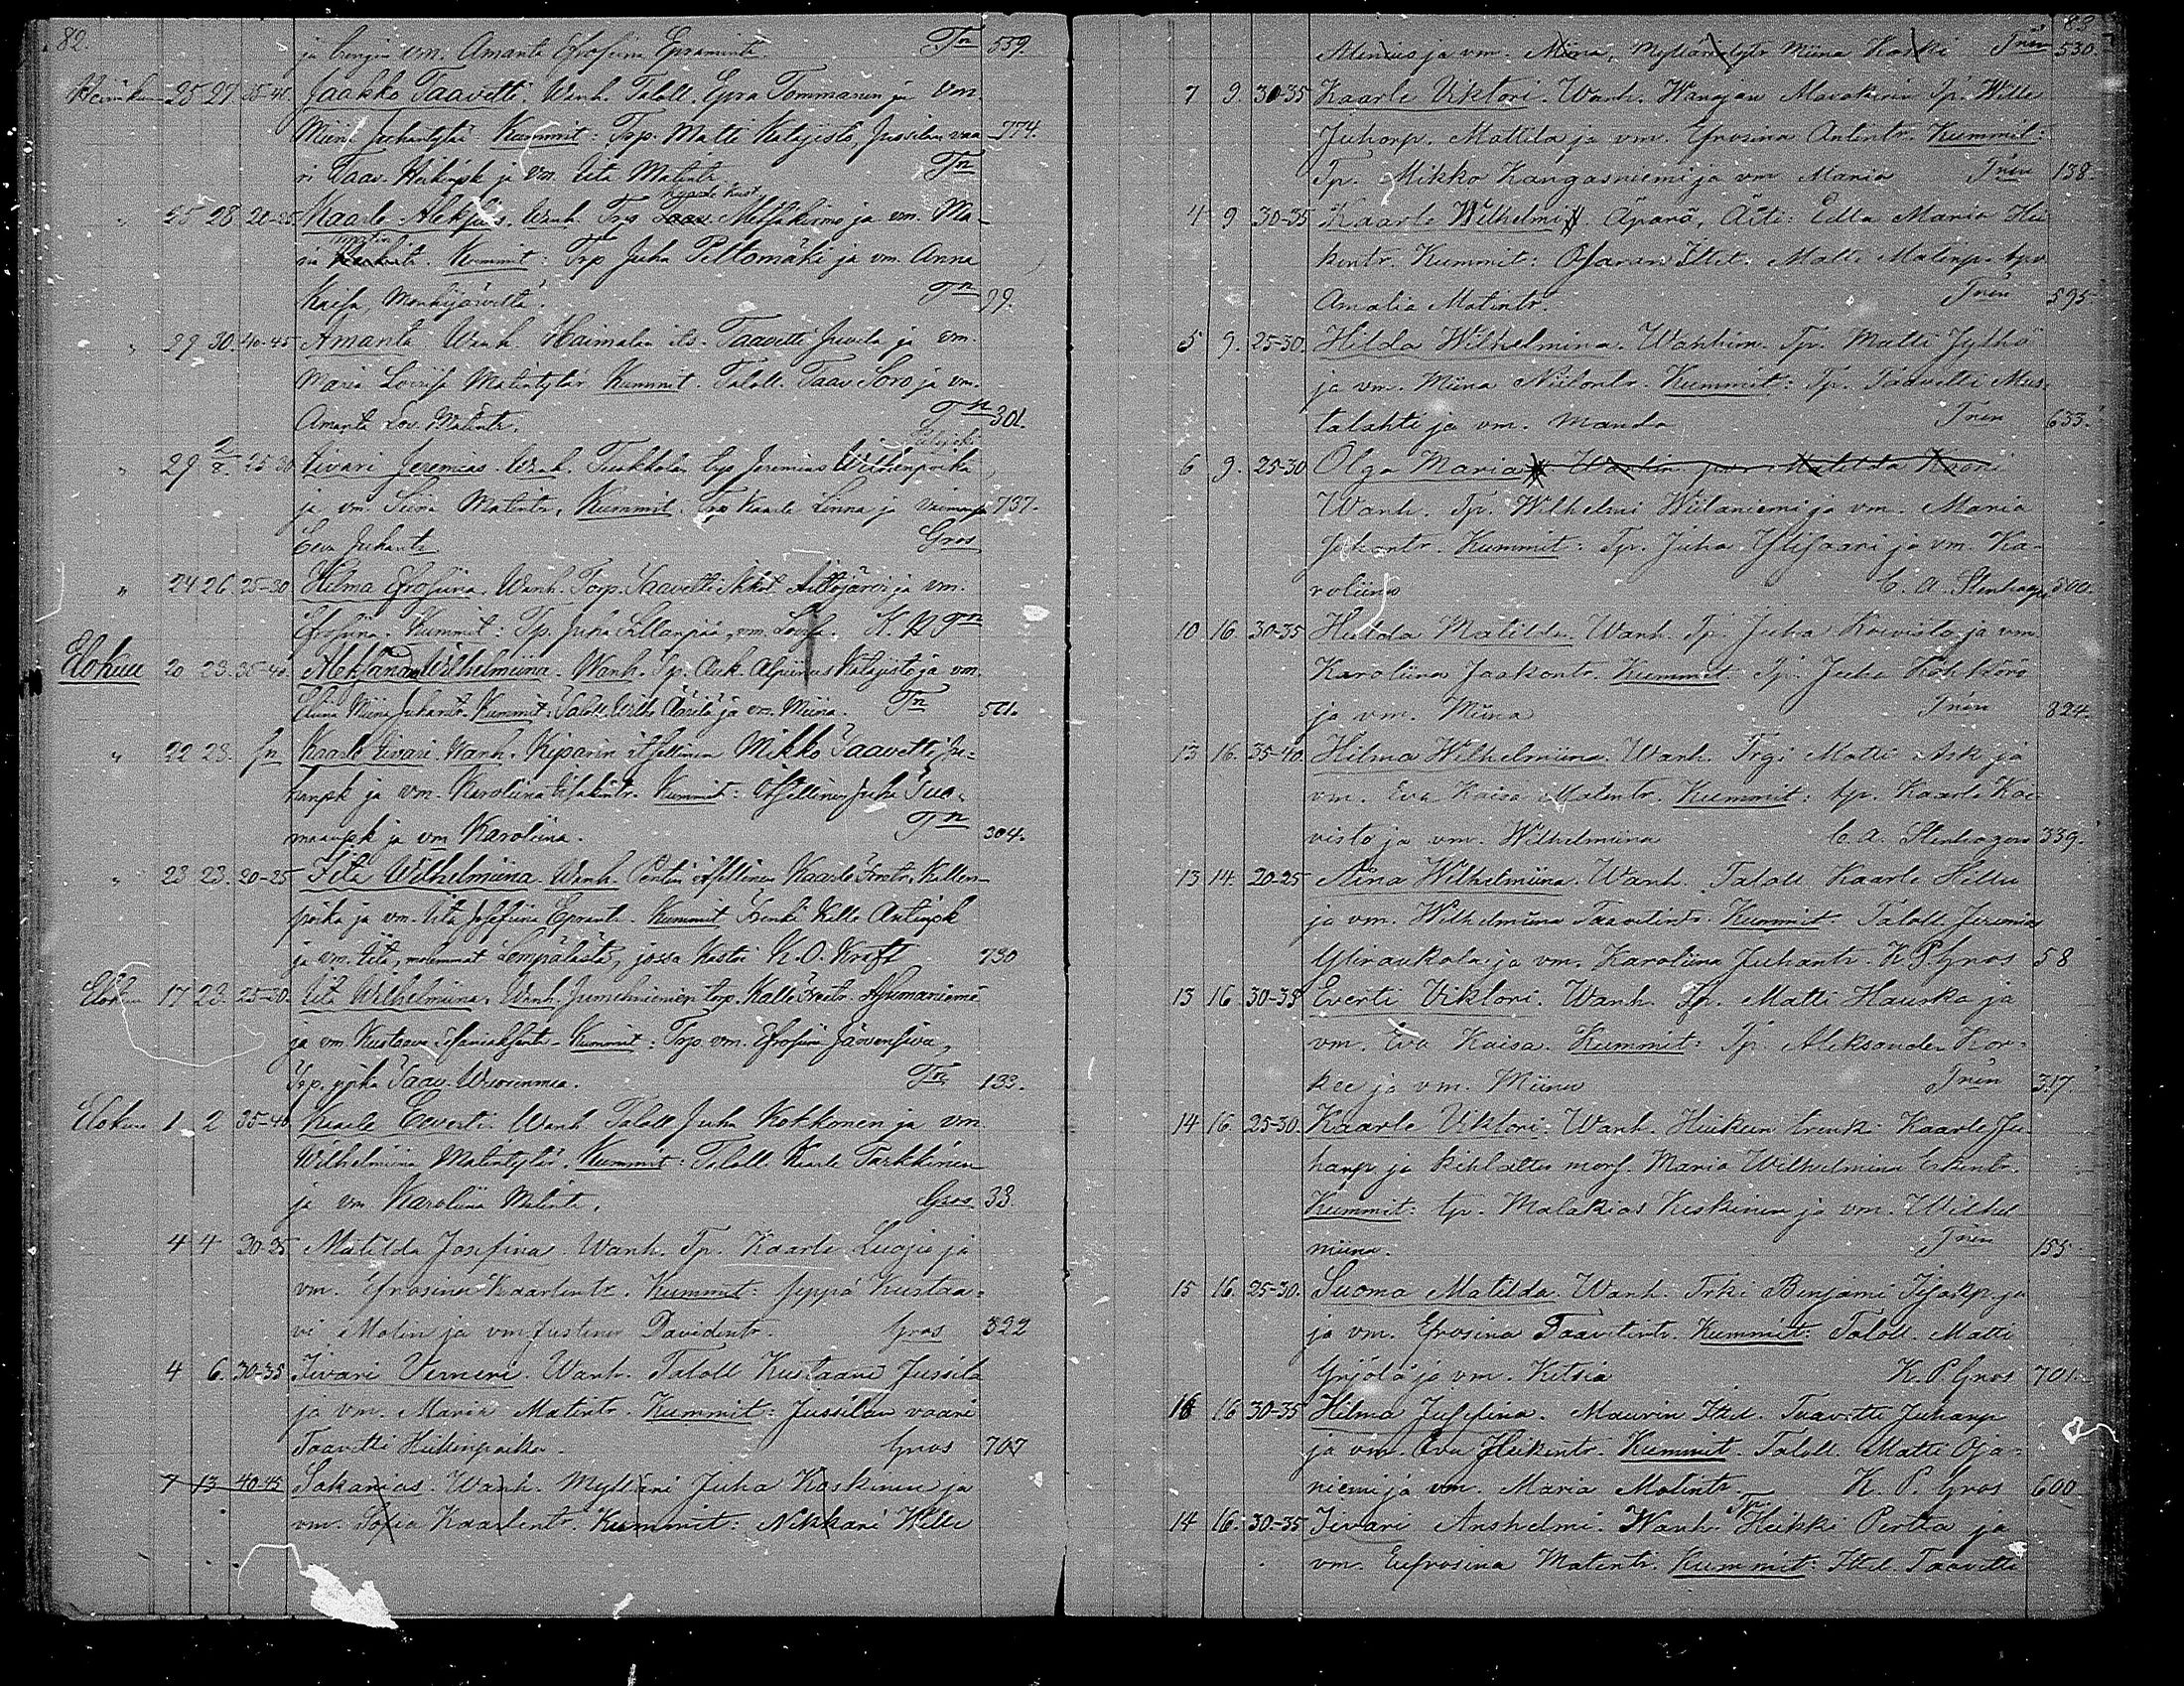 82.
ja vm. Amanta Efrosiina Epramintr. Tn 559.
Heinäkuu 25 27 35-40 Jaakko Taavetti. Wanh. Taloll. Epra Tommanen ja vm.
Miina Juhantytär. Kummit: Trp. Matti Katajisto, Jussilan vaa- 774.
ri Taav. Heikinpk ja vm. Eeta Matintr. Tn
" 25 28 20-25 Kaarle Aleksius. Wanh. Trp Kust. Metsäkorno ja vm. Ma-
ria Kummit: Trp Juha Peltomäki ja vm. Anna
Kaisa, Mouhijärveltä. Tn 29.
" 29 30. 40-45 Amanta Wanh. Haimalan its. Taavetti Juvela ja vm.
Maria Lovisa Matintytär Kummit. Taloll. Taav. Soro ja vm.
Amanta Lov. Matintr. Tn 301.
" 29 2/8. 25-30 Iivari Jeremias. Wanh. Tuokkolan Jeremias Willenpoika
ja vm. Stiina Matintr, Kummit: Trp Kaarle Linna ja vaimonsa 737.
Eeva Juhantr. Gros
" 24 26 25-30 Hilma Efrosiina. Wanh. Torp. Taavetti Aittojärvi ja vm.
Efrosiina. Kummit: Tp. Juha Sillanpää, vm. Lovisa. K. P Tn
Elokuu 20 23. 35-40. Aleksandra Wilhelmiina. Wanh. Tp. Auk. Alpiinus Katajisto ja vm.
Miina Juhantr. Kummit: Taloll. Wilho ja vm. Miina. Tn 501.
" 22 23. Kaarle Iivari. Wanh. Kiparin itsellinen Mikko Taavetti Ju-
hanpk ja vm. Karoliina Kummit: Itsellinen Juha Tuo-
maanpk ja vm Karoliina. Tn 304.
" 23 23. 20-25 Iita Wilhelmiina. Wanh. Pentin itsellinen Kaarle Kallen-
poika ja vm. Josefiina Eprantr. Kummit Renki Kalle Antinpk
ja vm. Iita, molemmat Lempäälästä, jossa Kasti K. O. Kraft 730
Elokuu 17 23. 25-30. Iita Wilhelmiina. Wanh. torp. Kalle
ja vm. Kustaava Kummit: Trp. vm. Efrosiina Järvensivu,
Trp. poika Taav. Wuorenmaa. Tn 133.
Elokuu 1 2 35-40. Kaarle Eeverti. Wanh. Taloll Juha Kokkonen ja vm
Wilhelmiina Matintytär. Kummit: Taloll. Kaarle Parkkinen
ja vm Karoliina Matintr. Gros 33.
4 4 30-35 Matilda Josefina Wanh. Tp. Kaarle ja
vm. Efrosina Kaarlentr. Kummit: Seppä Kustaa-
vi Molin ja vm Justina Davidintr. Gros 322
4 6. 30-35 Iivari Verneri. Wanh. Taloll Kustaava Jussila
ja vm. Maria Matintr. Kummit: Jussilan vaari
Taavetti Heikinpoika. Gros 707
7 13 40-45 Sakarias. Wanh. Mylläri Juha Koskinen ja
vm. Sofia Kaarlentr. Kummit: Nikkari Wille
83
ja vm. Miina, Myllärintytr Miina Koski Tnén 530.
7 9. 30-35 Kaarle Viktori. Wanh. Wanajan Tp. Wille
Juhonp. Mattila ja vm. Efrosina Antintr. Kummit:
Tp. Mikko Kangasniemi ja vm Maria Tnén 138.
4 9 30-35 Kaarle Wilhelmi. Äpärä, Äiti: Edla Maria Hei-
kintr. Kummit: Ittel. Matti Matinp.
Amalia Matintr. Tnén 595
5 9. 25-30. Hilda Wilhelmina. Wanhim. Tp. Matti Jylhä
ja vm. Miina Niilontr. Kummit: Tp. Taavetti Mus-
talahti ja vm. Manda Tnén 633.
6 9. 25-30 Olga Maria
Wanh. Tp. Wilhelmi Wiilaniemi ja vm. Maria
Juhontr. Kummit: Tp. Juha Ylisaari ja vm. Ka-
roliina C. A. Stenhagen 500.
10 16. 30-35 Hulda Matilda. Wanh. Tp. Juha Koivisto ja vm.
Karoliina Jaakontr. Kummit Tp. Juha
ja vm. Miina Tnén 824.
13 16. 35-40. Hilma Wilhelmiina. Wanh. Trp. Matti Ask ja
vm. Eva Kaisa Matintr. Kummit: tp. Kaarle Koi-
visto ja vm. Wilhelmiina C. A. Stenhagen 339.
13 14. 20-25 Aina Wilhelmiina. Wanh. Taloll Kaarle
ja vm. Wilhelmiina Taavetintr. Kummit. Taloll. Jeremias
Yliraukola ja vm. Karoliina Juhantr. K P. Gros 58
13 16 30-35 Everti Viktori. Wanh. Tp. Matti Hauska ja
vm. Eva Kaisa. Kummit: Tp. Aleksander Kor-
kee ja vm. Miina Tnén 317.
14 16. 25-30. Kaarle Viktori. Wanh. renki Kaarle Ju-
hanp. ja kihlattu mors. Maria Wilhelmiina
Kummit: tp. Malakias Keskinen ja vm. Wilhel
miina. Tnén 155.
15 16. 25-30. Suoma Matilda. Wanh. Trki Benjami ja
ja vm. Efrosina Taavetintr. Kummit: Taloll. Matti
Yrjölä ja vm. Ketsia K. P. Gros 701.
16 16 30-35 Hilma Josefina. Maurin Ittel. Taavetti Juhanp
ja vm. Eva Heikintr. Kummit. Taloll. Matti Oja-
niemi ja vm. Maria Matintr. K. P. Gros 600
14 16. 30-35 Iivari Anshelmi. Wanh. Tp. Heikki Pertta ja
vm. Eufrosina Matintr. Kummit: Ittel. Taavetti